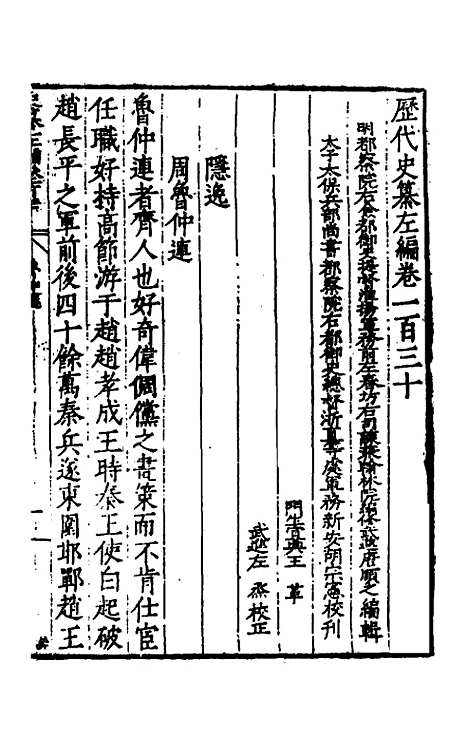 歷代史纂左編卷一百三十
明都察院右僉都御史提督淮揚軍務前左春坊右司諫兼翰林院編修武進唐順之編輯
太子太保兵部尚書都察院右都御史總督浙直等處軍務新安胡宗憲校刊
門生嘉興王革
武進左烝校正
隱逸
周魯仲連
魯仲連者齊人也好奇偉俶儻之畫策而不肯仕宦
任職好持高節游于趙趙孝成王時秦王使白起破
趙長平之軍前後四十餘萬秦兵遂東圍邯鄲趙王